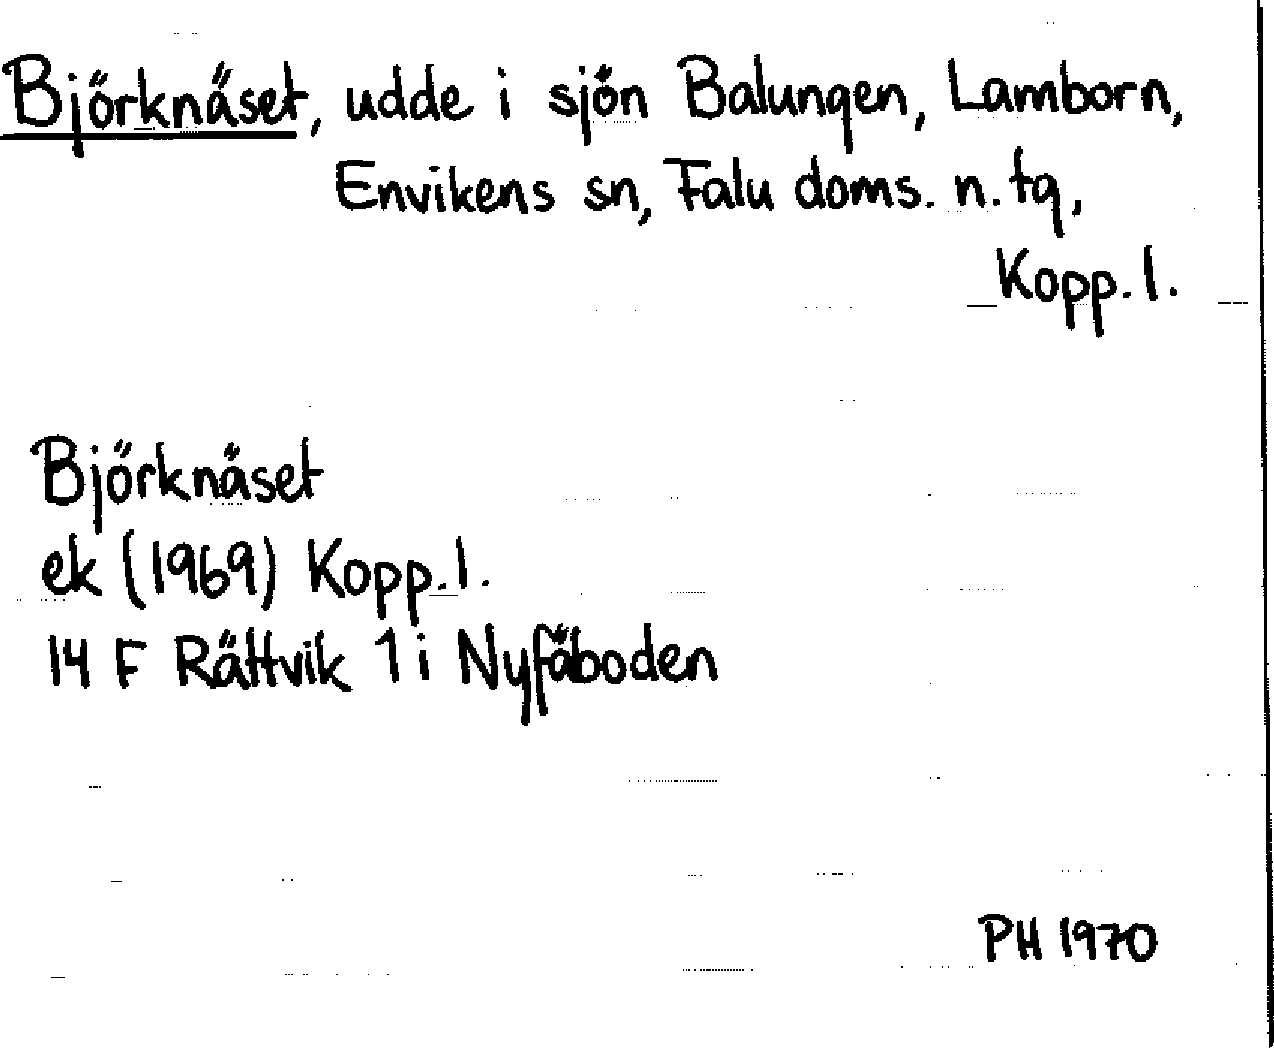 Björknäset, udde i sjön Balungen, Lamborn,
Envikens sn, Falu doms. n. tg,
Kopp. l.
Björknäset
ek (1969) Kopp. l.
14 F Rättvik 1 i Nyfäboden
PH 1970